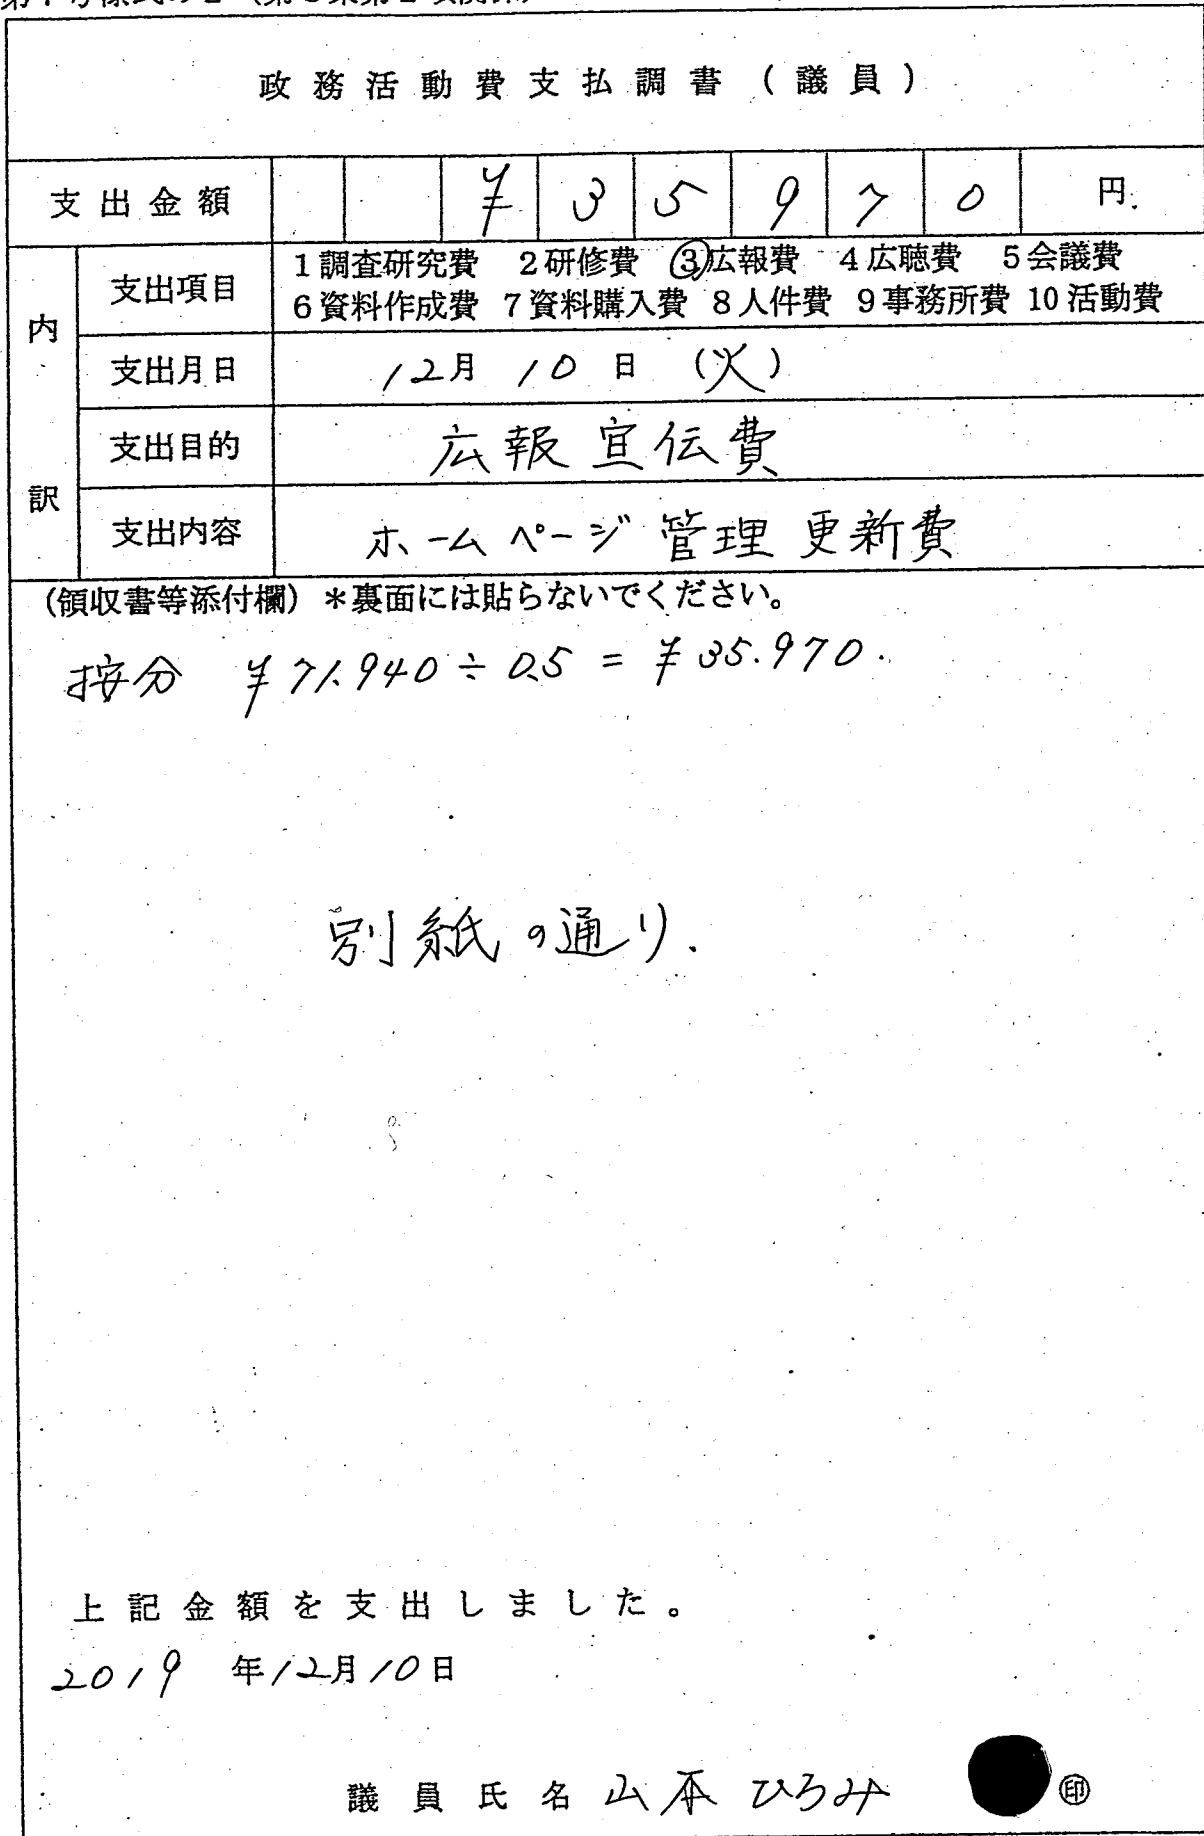 政務活動費支払調書（議員）
支出金額 ¥35970円
内訳
支出項目 1調査研究費 2研修費 ③広報費 4広聴費 5会議費
6資料作成費 7資料購入費 8人件費 9事務所費 10活動費
支出月日 12月10日（火）
支出目的 広報宣伝費
支出内容 ホームページ管理更新費
（領収書等添付欄）＊裏面には貼らないでください。
按分 ¥71.940÷0.5=¥35.970.
別紙の通り.
上記金額を支出しました。
2019年12月10日
議員氏名 山本ひろみ ㊞